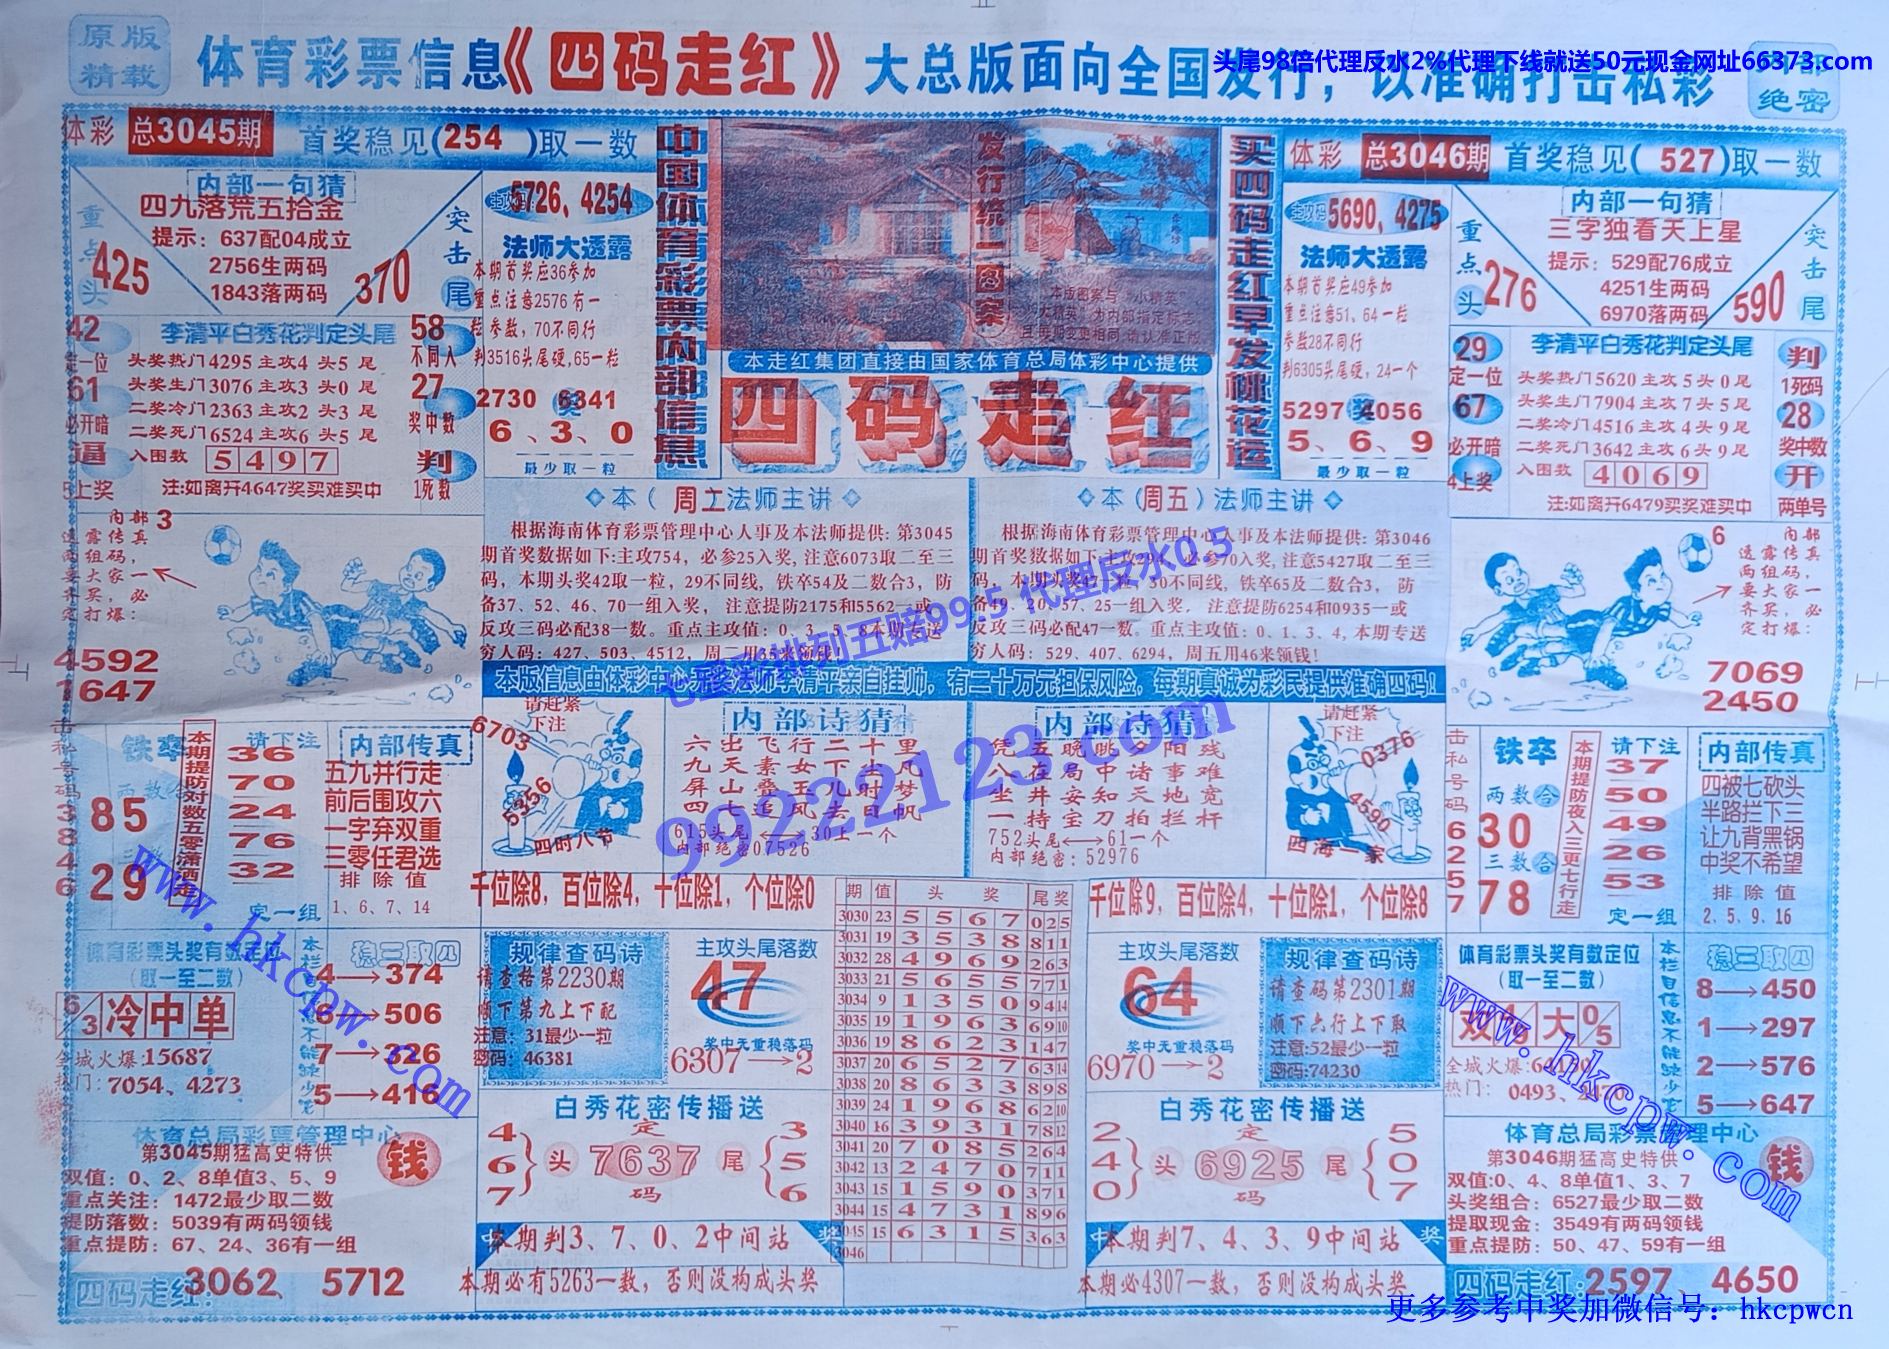 原版
精载
体育彩票信息《四码走红》大总版面向全国发行，以准确打击私彩
绝密
头尾98倍代理反水2%代理下线就送50元现金网址66373.com
体彩 总3045期 首奖稳见(254)取一数
内部一句猜
四九落荒五拾金
提示：637配04成立
2756生两码
1843落两码
重点头
425
突击尾
370
主攻码 5726、4254
法师大透露
本期首奖应36参加
重点注意2576有一
粒参数，70不同行
判3516头尾硬,65一粒
2730 奖 6341
6、3、0
最少取一粒
42
定一位
61
必开暗
逼
5上奖
李清平白秀花判定头尾
头奖热门4295主攻4头5尾
头奖生门3076主攻3头0尾
二奖冷门2363主攻2头3尾
二奖死门6524主攻6头5尾
入围数 5497
注:如离开4647奖买难买中
58
不同人
27
奖中数
判
1死数
中国体育彩票内部信息
发行统一图案
本走红集团直接由国家体育总局体彩中心提供
四码走红
买四码走红早发桃花运
体彩 总3046期 首奖稳见(527)取一数
主攻码 5690、4275
法师大透露
本期首奖应49参加
重点注意51、64一粒
参数28不同行
判6305头尾硬,24一个
5297 奖 4056
5、6、9
最少取一粒
内部一句猜
三字独看天上星
提示：529配76成立
4251生两码
6970落两码
重点头
276
突击尾
590
29
定一位
67
必开暗
4上奖
李清平白秀花判定头尾
头奖热门5620主攻5头0尾
头奖生门7904主攻7头5尾
二奖冷门4516主攻4头9尾
二奖死门3642主攻6头9尾
入围数 4069
注:如离开6479买奖难买中
判
1死码
28
奖中数
开
两单号
内部 3
透露传真
两组码,
要大家一
齐买,必
定打爆:
4592
1647
本(周二)法师主讲
根据海南体育彩票管理中心人事及本法师提供: 第3045
期首奖数据如下:主攻754，必参25入奖, 注意6073取二至三
码，本期头奖42取一粒，29不同线, 铁卒54及二数合3，防
备37、52、46、70一组入奖， 注意提防2175和5562一或
反攻三码必配38一数。重点主攻值: 0、3、5、8本期专送
穷人码: 427、503、4512，周二用35来领钱!
本(周五)法师主讲
根据海南体育彩票管理中心人事及本法师提供: 第3046
期首奖数据如下:主攻294，必参70入奖, 注意5427取二至三
码，本期头奖47一粒，30不同线, 铁卒65及二数合3，防
备49、20、57、25一组入奖， 注意提防6254和0935一或
反攻三码必配47一数。重点主攻值: 0、1、3、4，本期专送
穷人码: 529、407、6294，周五用46来领钱!
6 内部
透露传真
两组码,
要大家一
齐买,必
定打爆:
7069
2450
本版信息由体彩中心开奖法师李清平亲自挂帅，有二十万元担保风险，每期真诚为彩民提供准确四码！
七星彩排列五赔99.5 代理反水0.5
99232123.com
击私号码
3
8
4
6
铁卒
两数合
85
三数合
29
本期提防对数五零潇洒走
请下注
36
70
24
76
32
定一组
内部传真
五九并行走
前后围攻六
一字弃双重
三零任君选
排除值
1、6、7、14
请赶紧
下注
6703
5356
四时八节
内部诗猜
六出飞行二十里
九天素女下尘凡
屏山当玉儿时梦
四七追风去百帆
615头尾⟷30上一个
内部绝密07526
内部诗猜
凭五晚眺夕阳残
八在局中诸事难
坐井安知天地宽
一持宝刀拍拦杆
752头尾⟷61一个
内部绝密: 52976
请赶紧
下注
0376
4590
四海一家
击私号码
6
2
5
7
铁卒
两数合
30
三数合
78
本期提防夜入三更七行走
请下注
37
50
49
26
53
定一组
内部传真
四被七砍头
半路拦下三
让九背黑锅
中奖不希望
排除值
2、5、9、16
千位除8，百位除4，十位除1，个位除0
千位除9，百位除4，十位除1，个位除8
期 值 头奖 尾奖
3030 23 5 5 6 7 0 2 5
3031 19 3 5 3 8 8 1 1
3032 28 4 9 6 9 2 6 3
3033 21 5 6 5 5 7 7 1
3034 9 1 3 5 0 9 4 14
3035 19 1 9 6 3 6 9 10
3036 19 8 6 2 3 1 4 7
3037 20 6 5 2 7 6 3 14
3038 20 8 6 3 3 8 9 8
3039 24 1 9 6 8 6 2 10
3040 16 3 9 3 1 7 8 12
3041 20 7 0 8 5 2 6 4
3042 13 2 4 7 0 7 1 1
3043 15 1 5 9 0 3 7 1
3044 15 4 7 3 1 8 9 6
3045 15 6 3 1 5 3 6 3
3046
体育彩票头奖有数定位
(取一至二数)
6/3 冷中单
全城火爆:15687
热门: 7054、4273
稳三取四
4→374
8→506
7→326
5→416
规律查码诗
请查格第2230期
顺下第九上下配
注意: 31最少一粒
密码: 46381
主攻头尾落数
47
奖中无重稳落码
6307→2
主攻头尾落数
64
奖中无重稳落码
6970→2
规律查码诗
请查码第2301期
顺下六行上下取
注意:52最少一粒
密码:74230
体育彩票头奖有数定位
(取一至二数)
本栏目信息不能缺少它
稳三取四
8→450
1→297
2→576
5→647
体育总局彩票管理中心
第3045期猛高史特供
钱
双值: 0、2、8单值3、5、9
重点关注: 1472最少取二数
提防落数: 5039有两码领钱
重点提防: 67、24、36有一组
四码走红: 3062、5712
白秀花密传播送
4
6
7
头
定
7637
码
尾
3
5
6
本期判3、7、0、2中间站
本期必有5263一数，否则没构成头奖
白秀花密传播送
2
4
0
头
定
6925
码
尾
5
0
7
本期判7、4、3、9中间站
本期必4307一数，否则没构成头奖
体育总局彩票管理中心
第3046期猛高史特供
钱
双值:0、4、8单值1、3、7
头奖组合: 6527最少取二数
提取现金: 3549有两码领钱
重点提防: 50、47、59有一组
四码走红: 2597 4650
www.hkcpw.com
www.hkcpw.com
更多参考中奖加微信号: hkcpwcn